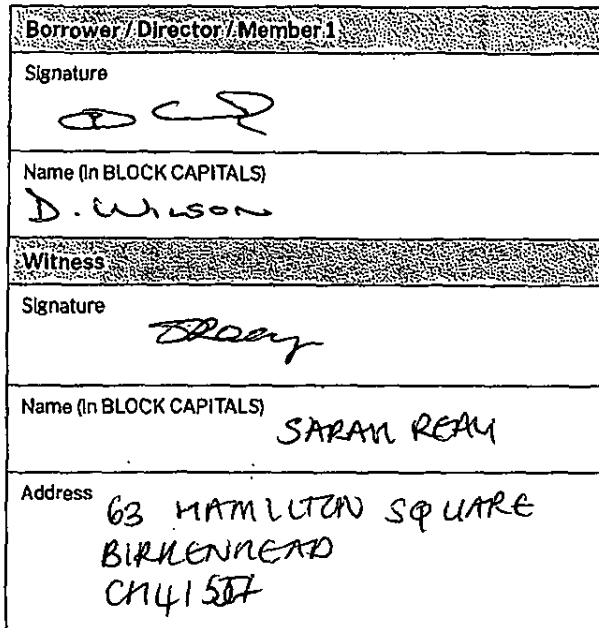 Borrower / Director / Member 1
Signature
Name (In BLOCK CAPITALS)
D. WILSON
Witness
Signature
Name (In BLOCK CAPITALS) SARAH REAY
Address 63 HAMILTON SQUARE
BIRKENHEAD
CH41